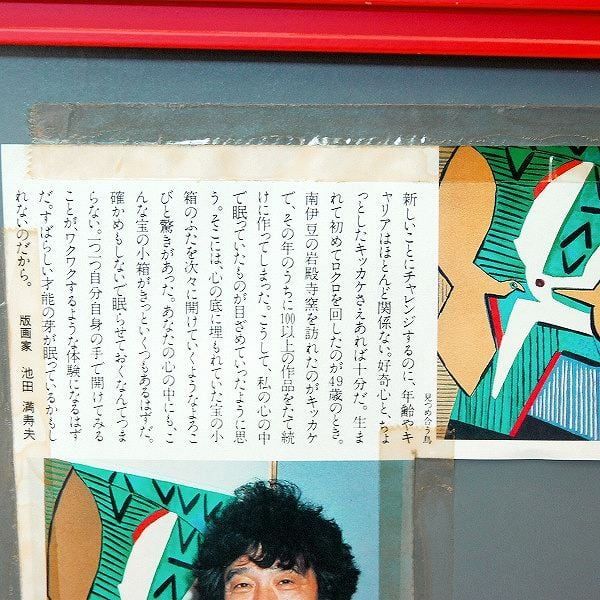 新しいことにチャレンジするのに、年齢やキ
ャリアはほとんど関係ない。好奇心と、ちょ
っとしたキッカケさえあれば十分だ。生ま
れて初めてロクロを回したのが49歳のとき。
南伊豆の岩殿寺窯を訪れたのがキッカケ
で、その年のうちに100以上の作品をたて続
けに作ってしまった。こうして、私の心の中
で眠っていたものが目ざめていったように思
う。そこには、心の底に埋もれていた宝の小
箱のふたを次々に開けていくようなよろこ
びと驚きがあった。あなたの心の中にも、こ
んな宝の小箱がきっといくつもあるはずだ。
確かめもしないで眠らせておくなんてつま
らない。一つ一つ自分自身の手で開けてみる
ことが、ワクワクするような体験になるはず
だ。すばらしい才能の芽が眠っているかもし
れないのだから。
版画家 池田 満寿夫
見つめ合う鳥